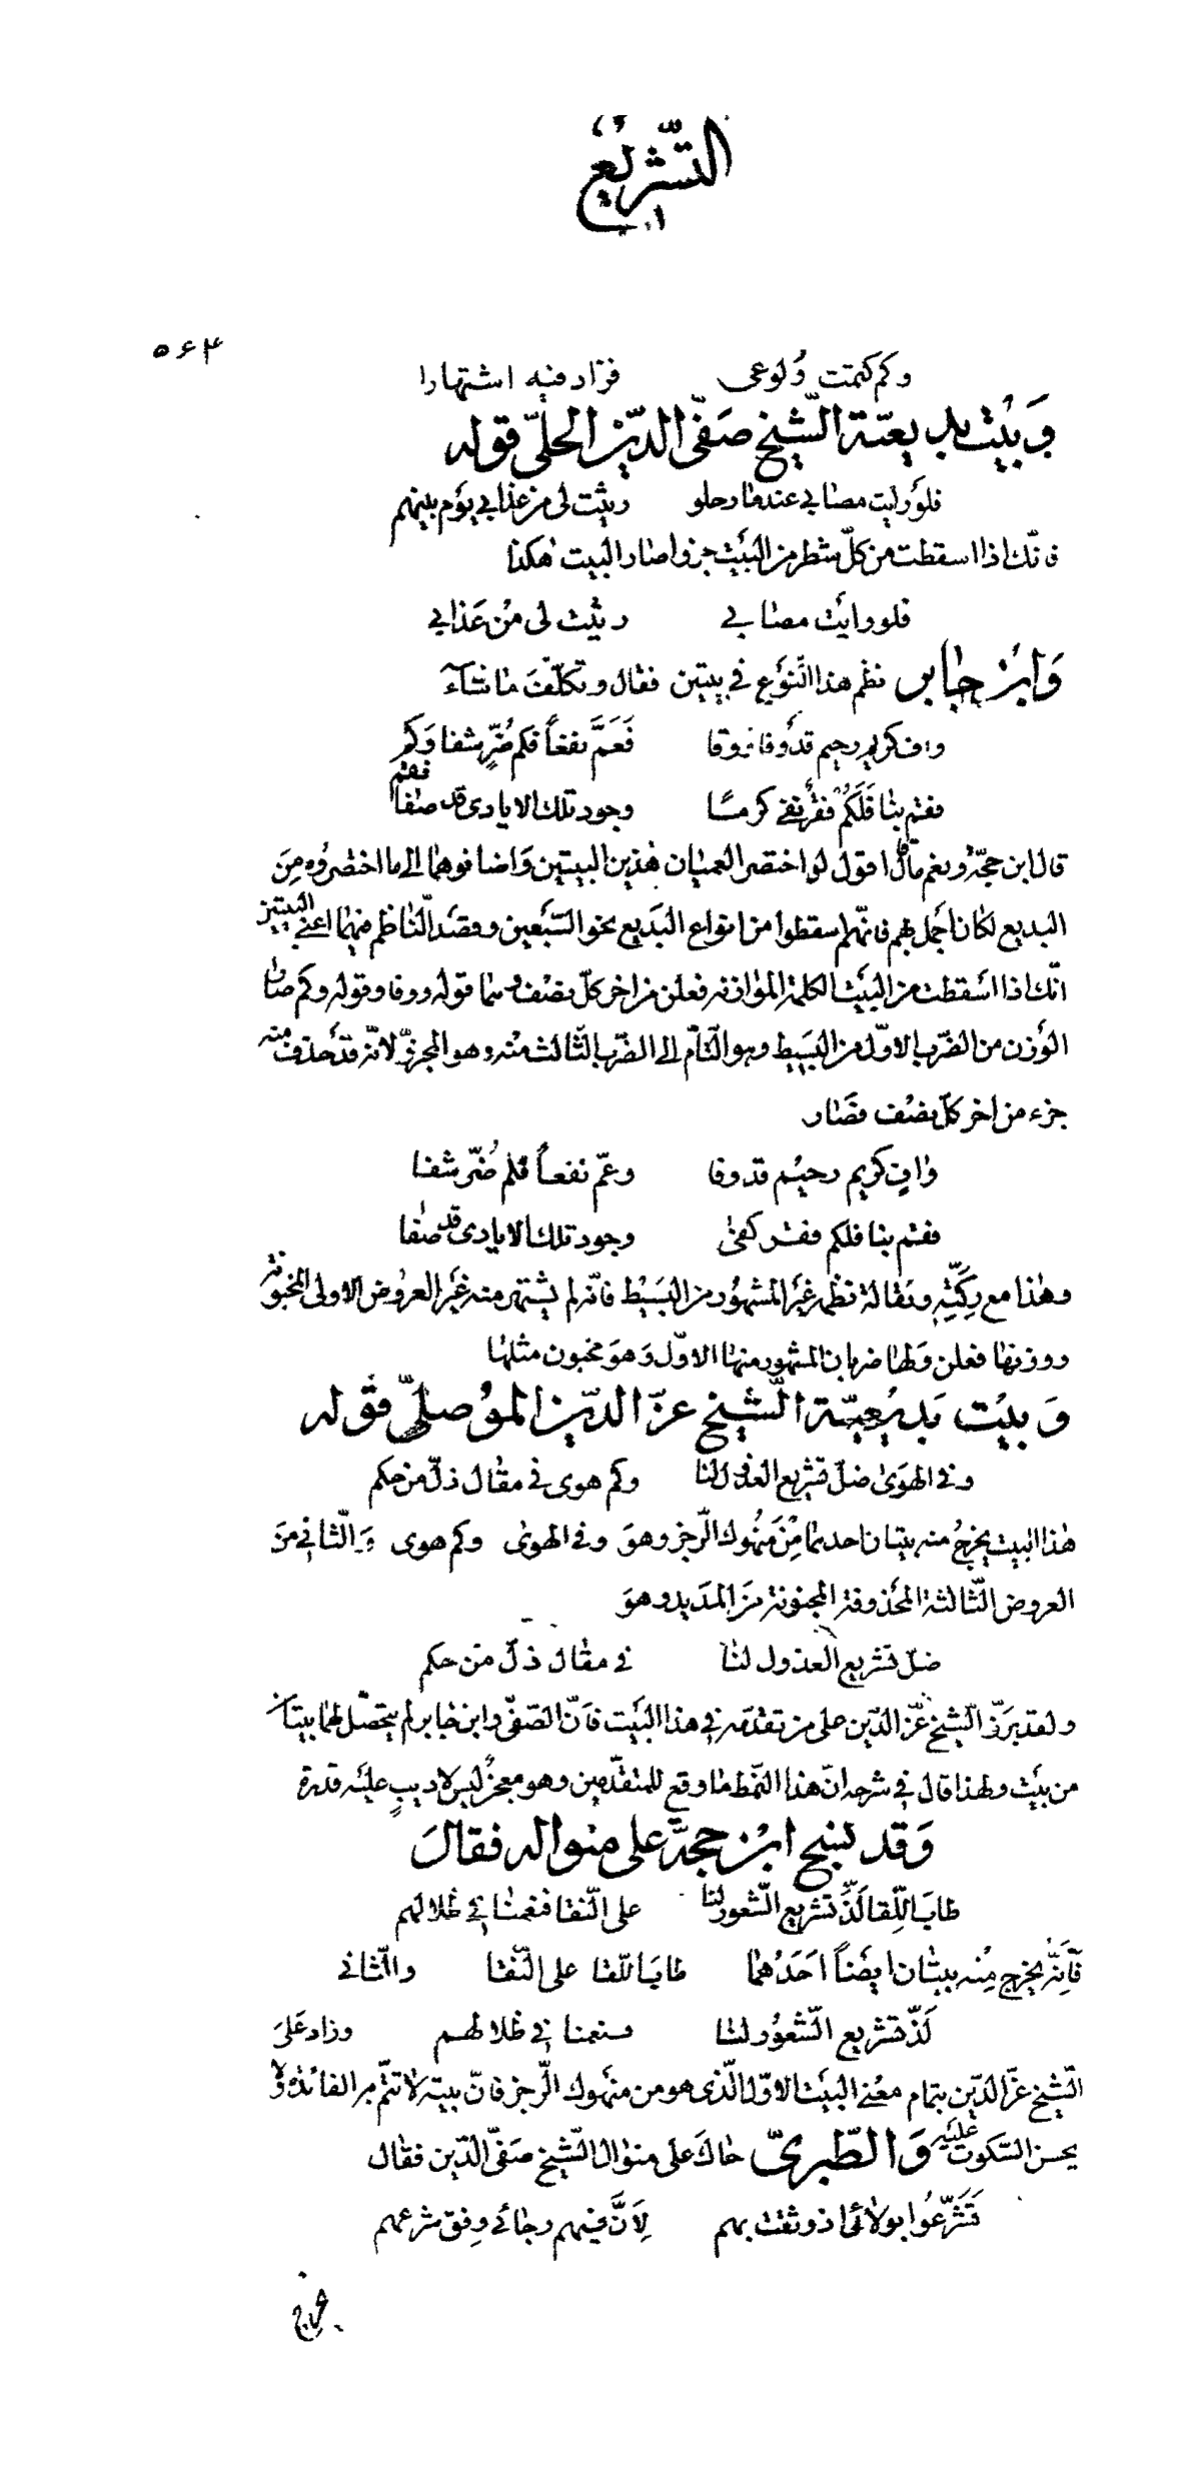 التشريع
۵۶۳
وكم كتمت ولوعى فزاد فيه اشتهارا
وَبيت بديعيّة الشّيخ صَفّى الدّين الحلّى قوله
فلو رايت مصابي عند ما رحلو رثيت لى من عذابي يوم بينهم
فانّك اذا اسقطت من كلّ شطر من البيت جزوا صار البيت هكذا
فلو رايت مصابي رثيت لى من عذابي
وَابن جابر نظم هذا النّوع في بيتين فقال وتكلّفت ما نشاء
واف كريم رحيم قد وفا ووقا فعمّ نفعاً فكم ضرّ شفا وكم
فقم بنا فلكم فقر نفى كرما وجود تلك الايادى قد صفا فقم
قال ابن حجّة ونعم ما قال اقول لو اختصر العميان هذين البيتين واضافوهما الى ما اختصروه من
البديع لكان اجمل بهم فانّهم اسقطوا من انواع البديع نحو السّبعين وقصد النّاظم فيهما اعنى البيتين
انّك اذا اسقطت من البيت الكلمة الموازنة فعلن من اخر كلّ نصف وهما قوله ووقا وقوله وكم صار
الوزن من الضرب الاوّل من البسيط وهو التّام الى الضرب الثّالث منه وهو المجزوّ لانّه قد حذف منه
جزء من اخر كلّ نصف فصار
واف كريم رحيم قد وفا وعمّ نفعاً فكم ضرّ شفا
فقم بنا فلكم فقر كفى وجود تلك الايادى قد صفا
وهذا مع ركّته وثقالة نظمه غير المشهور من البسيط فانّه لم يشتهر منه غير العروض الاولى المخبونة
ووزنها فعلن ولها ضربان المشهور منها الاوّل وهو مخبون مثلها
وَبيت بديعيّة الشّيخ عزّ الدّين الموصلىّ قوله
وفى الهوى ضلّ تشريع العذول لنا وكم هوى في مقال ذلّ من حكم
هذا البيت يخرج منه بيتان احدهما من منهوك الرّجز وهو وفى الهوى وكم هوى والثّاني من
العروض الثّالثة المحذوفة المخبونة من المديد وهو
ضلّ تشريع العذول لنا في مقال ذلّ من حكم
ولقد برّز الشّيخ عزّ الدّين على من تقدّمه في هذا البيت فانّ الصّفىّ وابن جابر لم يتحصّل لهما بيتان
من بيت ولهذا قال في شرحه انّ هذا النّمط ما وقع للمتقدّمين وهو معجز ليس لاديب عليه قدرة
وَقد نسج ابن حجّة على منواله فقال
طاب اللّقا لذّ تشريع الشّعور لنا على النّقا فنعمنا في ظلالهم
فانّه يخرج منه بيتان ايضاً احدهما طاب اللّقا على النّقا والثّانى
لذّ تشريع الشّعور لنا فنعمنا في ظلالهم وزاد على
الشّيخ عزّ الدّين بتمام معنى البيت الاوّل الّذى هو من منهوك الرّجز فانّ بيته لا تتمّ به الفائدة ولا
يحسن السّكوت عليه وَالطّبرىّ حاك على منوال الشّيخ صفىّ الدّين فقال
تشرّعوا بولائى اذ وثقت بهم لانّ فيهم رجائى وفق شرعهم